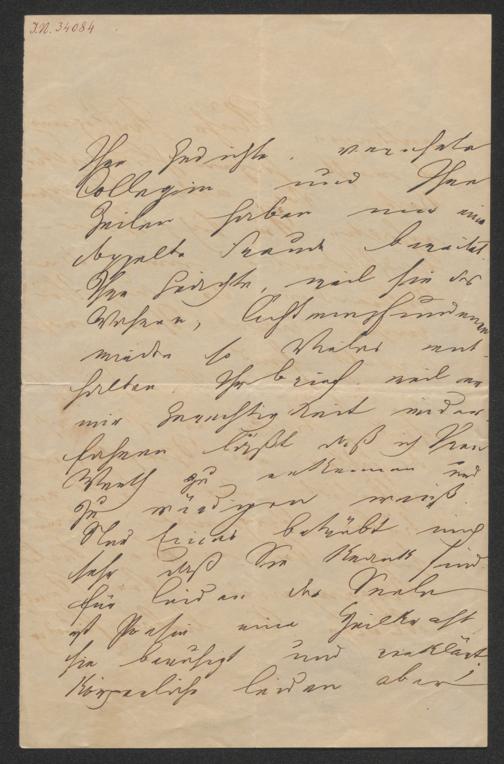 I.N. 34084
Ihre Gedichte, verehrte
Collegin und Ihre
Zeilen haben mir eine
doppelte Freude bereitet.
Ihre Gedichte, weil sie des
Wahren, Echtempfundenen
wieder so Vieles ent-
halten. Ihr Brief weil er
mir Gerechtigkeit wieder
fahren läßt daß ich Ihren
Werth zu erkennen und
zu würdigen weiß.
Nur Eines betrübt mich
sehr daß Sie krank sind
für Leiden der Seele
ist Poesie eine Heilkraft
sie beruhigt und verklärt
körperliche Leiden aber!